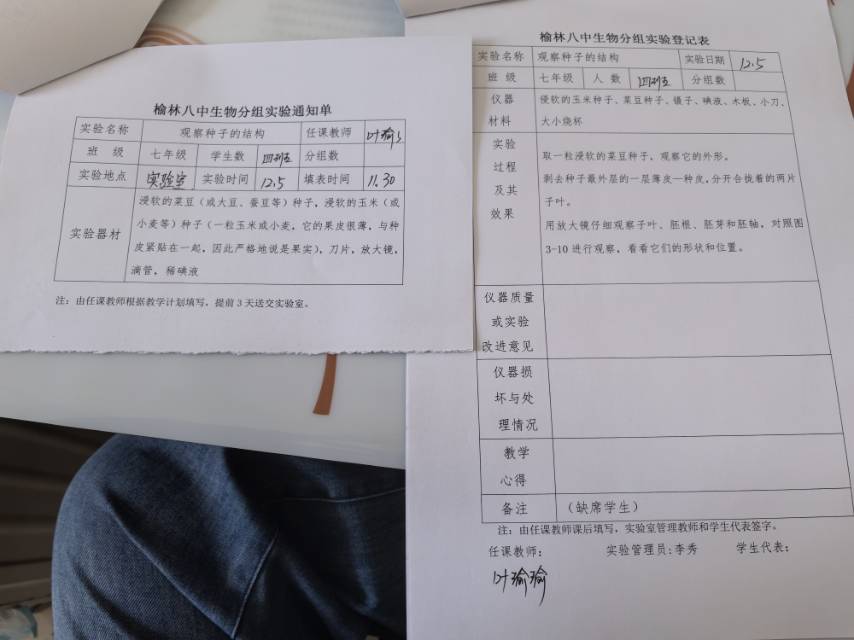 榆林八中生物分组实验通知单
实验名称 观察种子的结构 任课教师 叶瑜
班 级 七年级 学生数 四班 分组数
实验地点 实验室 实验时间 12.5 填表时间 11.30
实验器材
浸软的菜豆(或大豆、蚕豆等)种子,浸软的玉米(或
小麦等)种子(一粒玉米或小麦,它的果皮很薄,与种
皮紧贴在一起,因此严格地说是果实),刀片,放大镜,
滴管,稀碘液
注:由任课教师根据教学计划填写,提前 3 天送交实验室。
榆林八中生物分组实验登记表
实验名称 观察种子的结构 实验日期 12.5
班 级 七年级 人 数 四班 分组数
仪器
材料
浸软的玉米种子、菜豆种子、镊子、碘液、木板、小刀、
大小烧杯
实验
过程
及其
效果
取一粒浸软的菜豆种子,观察它的外形。
剥去种子最外层的一层薄皮—种皮,分开合拢着的两片
子叶。
用放大镜仔细观察子叶、胚根、胚芽和胚轴,对照图
3-10 进行观察,看看它们的形状和位置。
仪器质量
或实验
改进意见
仪器损
坏与处
理情况
教学
心得
备注 (缺席学生)
注:由任课教师课后填写,实验室管理教师和学生代表签字。
任课教师: 实验管理员:李秀 学生代表:
叶瑜瑜